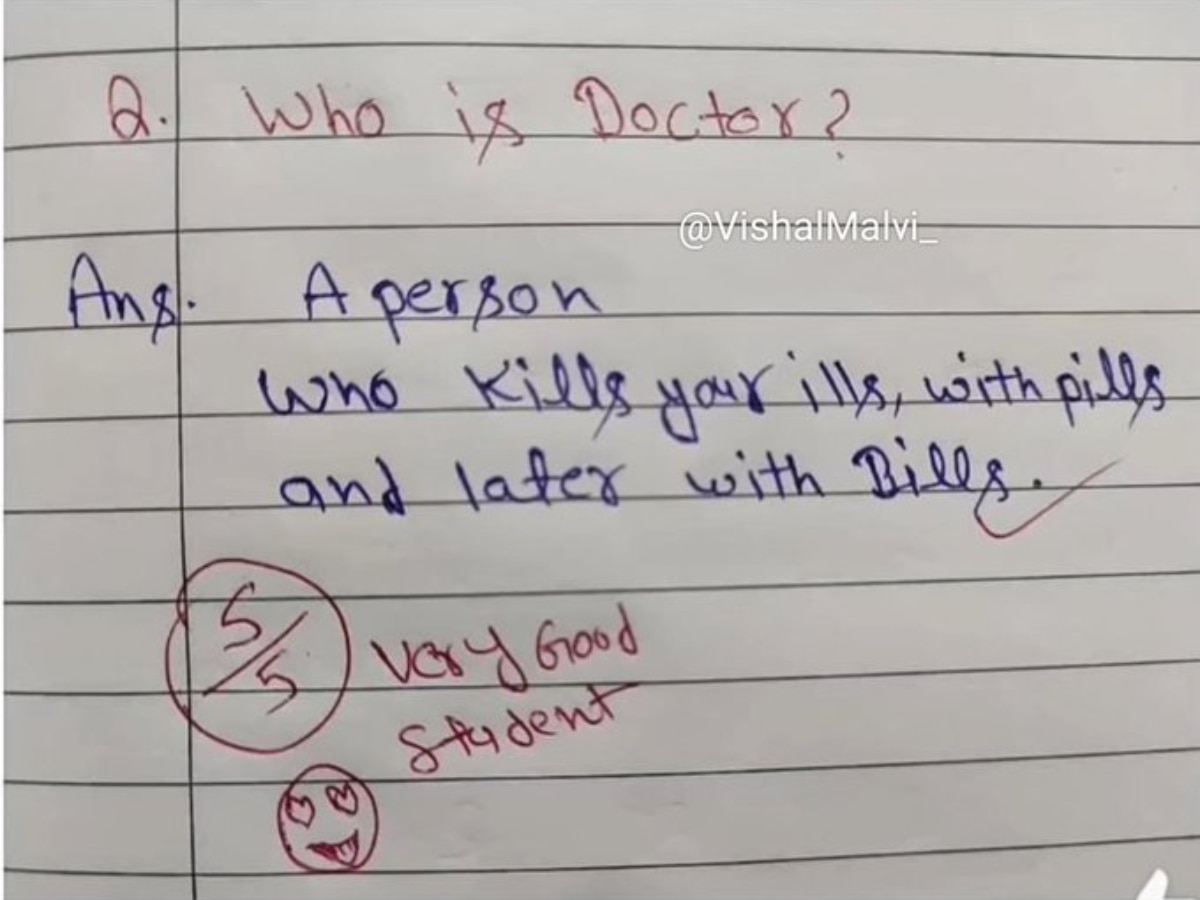 Q. Who is Doctor?
@VishalMalvi_
Ans. A person
who kills your ills, with pills
and later with Bills.
5/5 Very Good
Student